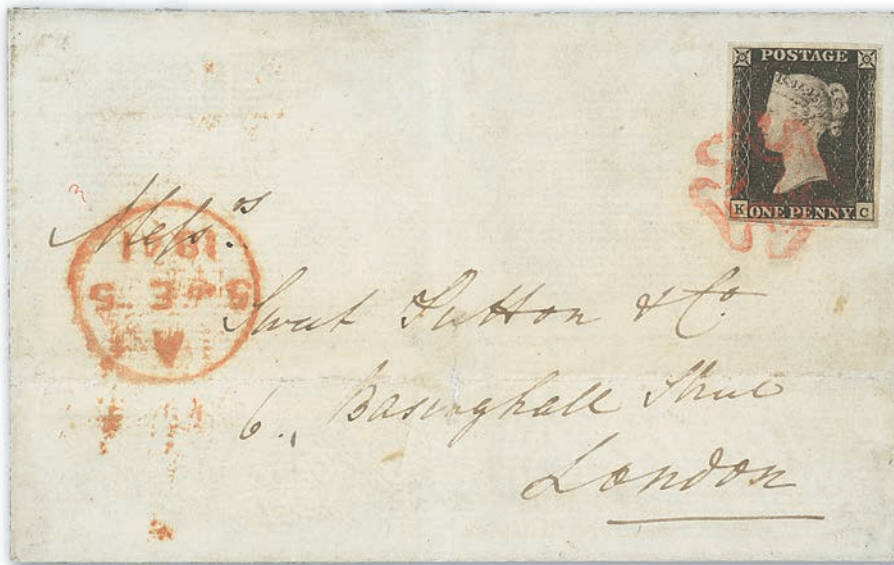 POSTAGE
K ONE PENNY C
Messrs.
Sweet Sutton & Co.
6., Basinghall Street
London
A
1841